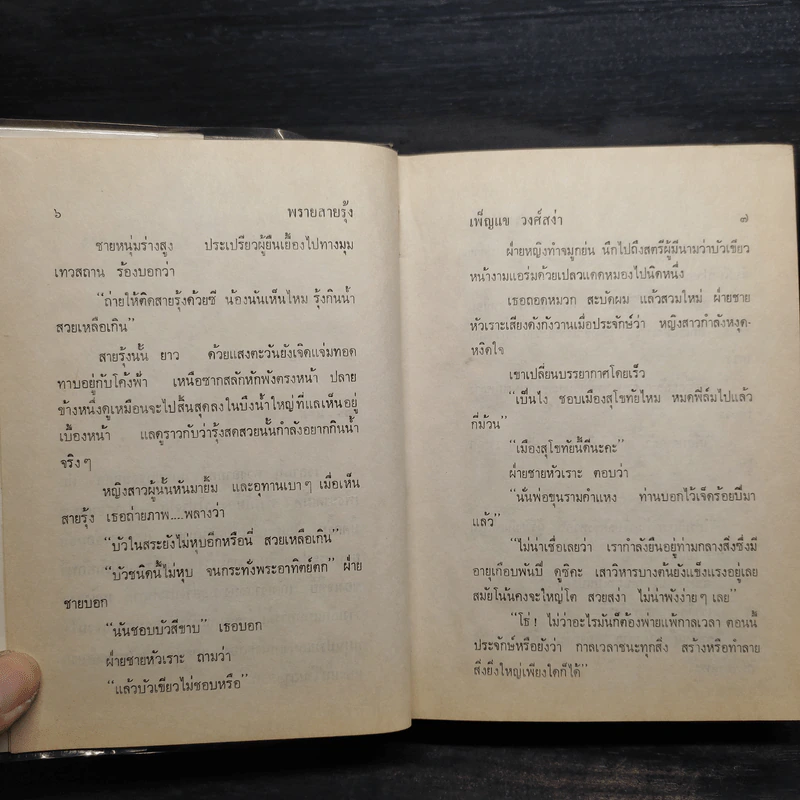 ๖ พรายสายรุ้ง
ชายหนุ่มร่างสูง ประเปรียวผู้ยืนเยื้องไปทางมุม
เทวสถาน ร้องบอกว่า
“ถ่ายให้ติดสายรุ้งด้วยซี น้องนันเห็นไหม รุ้งกินน้ำ
สวยเหลือเกิน”
สายรุ้งนั้น ยาว ด้วยแสงตะวันยังเจิดแจ่มทอด
ทาบอยู่กับโค้งฟ้า เหนือซากสลักหักพังตรงหน้า ปลาย
ข้างหนึ่งดูเหมือนจะไปสิ้นสุดลงในบึงน้ำใหญ่ที่แลเห็นอยู่
เบื้องหน้า แลดูราวกับว่ารุ้งสดสวยนั้นกำลังอยากกินน้ำ
จริงๆ
หญิงสาวผู้นั้นหันมายิ้ม และอุทานเบาๆ เมื่อเห็น
สายรุ้ง เธอถ่ายภาพ....พลางว่า
“บัวในสระยังไม่หุบอีกหรือนี่ สวยเหลือเกิน”
“บัวชนิดนี้ไม่หุบ จนกระทั่งพระอาทิตย์ตก” ฝ่าย
ชายบอก
“นันชอบบัวสีขาบ” เธอบอก
ฝ่ายชายหัวเราะ ถามว่า
“แล้วบัวเขียวไม่ชอบหรือ”
เพ็ญแข วงศ์สง่า ๗
ฝ่ายหญิงทำจมูกย่น นึกไปถึงสตรีผู้มีนามว่าบัวเขียว
หน้างามแอร่มด้วยเปลวแดดหมองไปนิดหนึ่ง
เธอถอดหมวก สะบัดผม แล้วสวมใหม่ ฝ่ายชาย
หัวเราะเสียงดังกังวานเมื่อประจักษ์ว่า หญิงสาวกำลังหงุด-
หงิดใจ
เขาเปลี่ยนบรรยากาศโดยเร็ว
“เป็นไง ชอบเมืองสุโขทัยไหม หมดฟิล์มไปแล้ว
กี่ม้วน”
“เมืองสุโขทัยนี้ดีนะคะ”
ฝ่ายชายหัวเราะ ตอบว่า
“นั่นพ่อขุนรามคำแหง ท่านบอกไว้เจ็ดร้อยปีมา
แล้ว”
“ไม่น่าเชื่อเลยว่า เรากำลังยืนอยู่ท่ามกลางสิ่งซึ่งมี
อายุเกือบพันปี ดูซิคะ เสาวิหารบางต้นยังแข็งแรงอยู่เลย
สมัยโน้นคงจะใหญ่โต สวยสง่า ไม่น่าพังง่ายๆ เลย”
“โธ่! ไม่ว่าอะไรมันก็ต้องพ่ายแพ้กาลเวลา ตอนนี้
ประจักษ์หรือยังว่า กาลเวลาชนะทุกสิ่ง สร้างหรือทำลาย
สิ่งยิ่งใหญ่เพียงใดก็ได้”